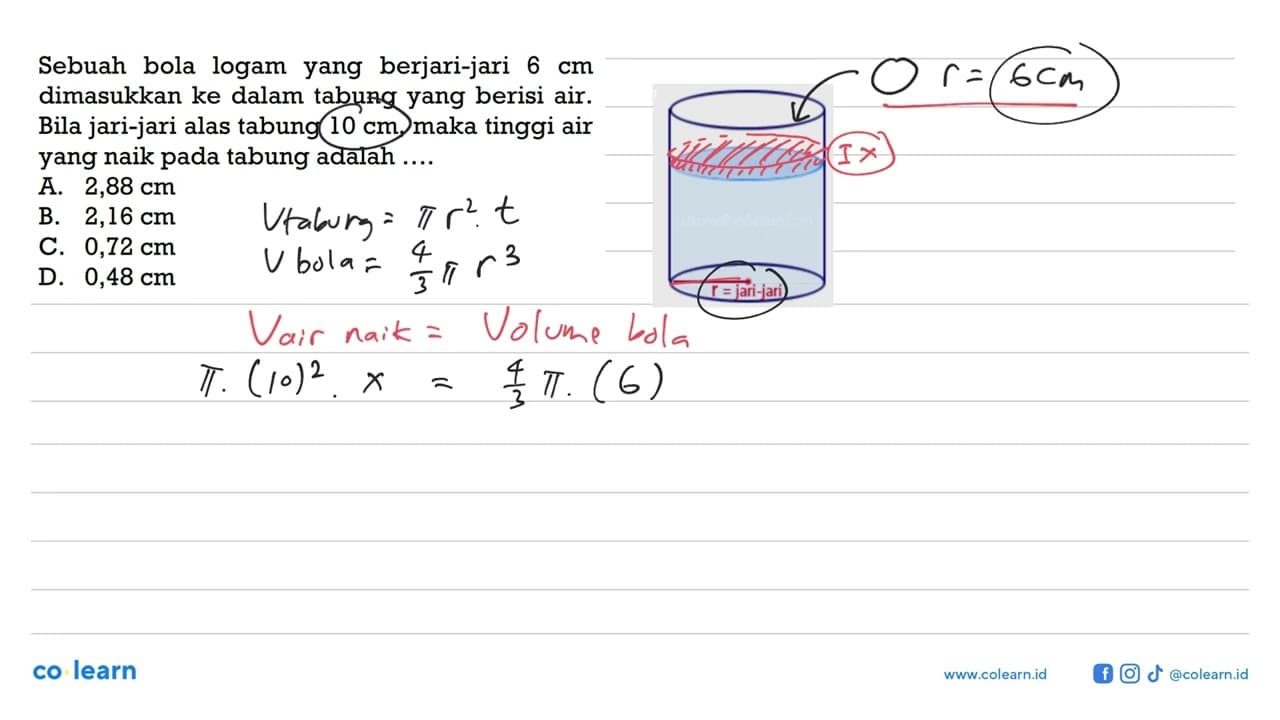 Sebuah bola logam yang berjari-jari 6 cm
dimasukkan ke dalam tabung yang berisi air.
Bila jari-jari alas tabung 10 cm, maka tinggi air
yang naik pada tabung adalah ....
A. 2,88 cm
B. 2,16 cm
C. 0,72 cm
D. 0,48 cm
r = 6 cm
I x
r = jari-jari
Vtabung = π r². t
V bola = 4/3 π r³
Vair naik = Volume bola
π. (10)². x = 4/3 π. (6)
co learn
www.colearn.id
@colearn.id